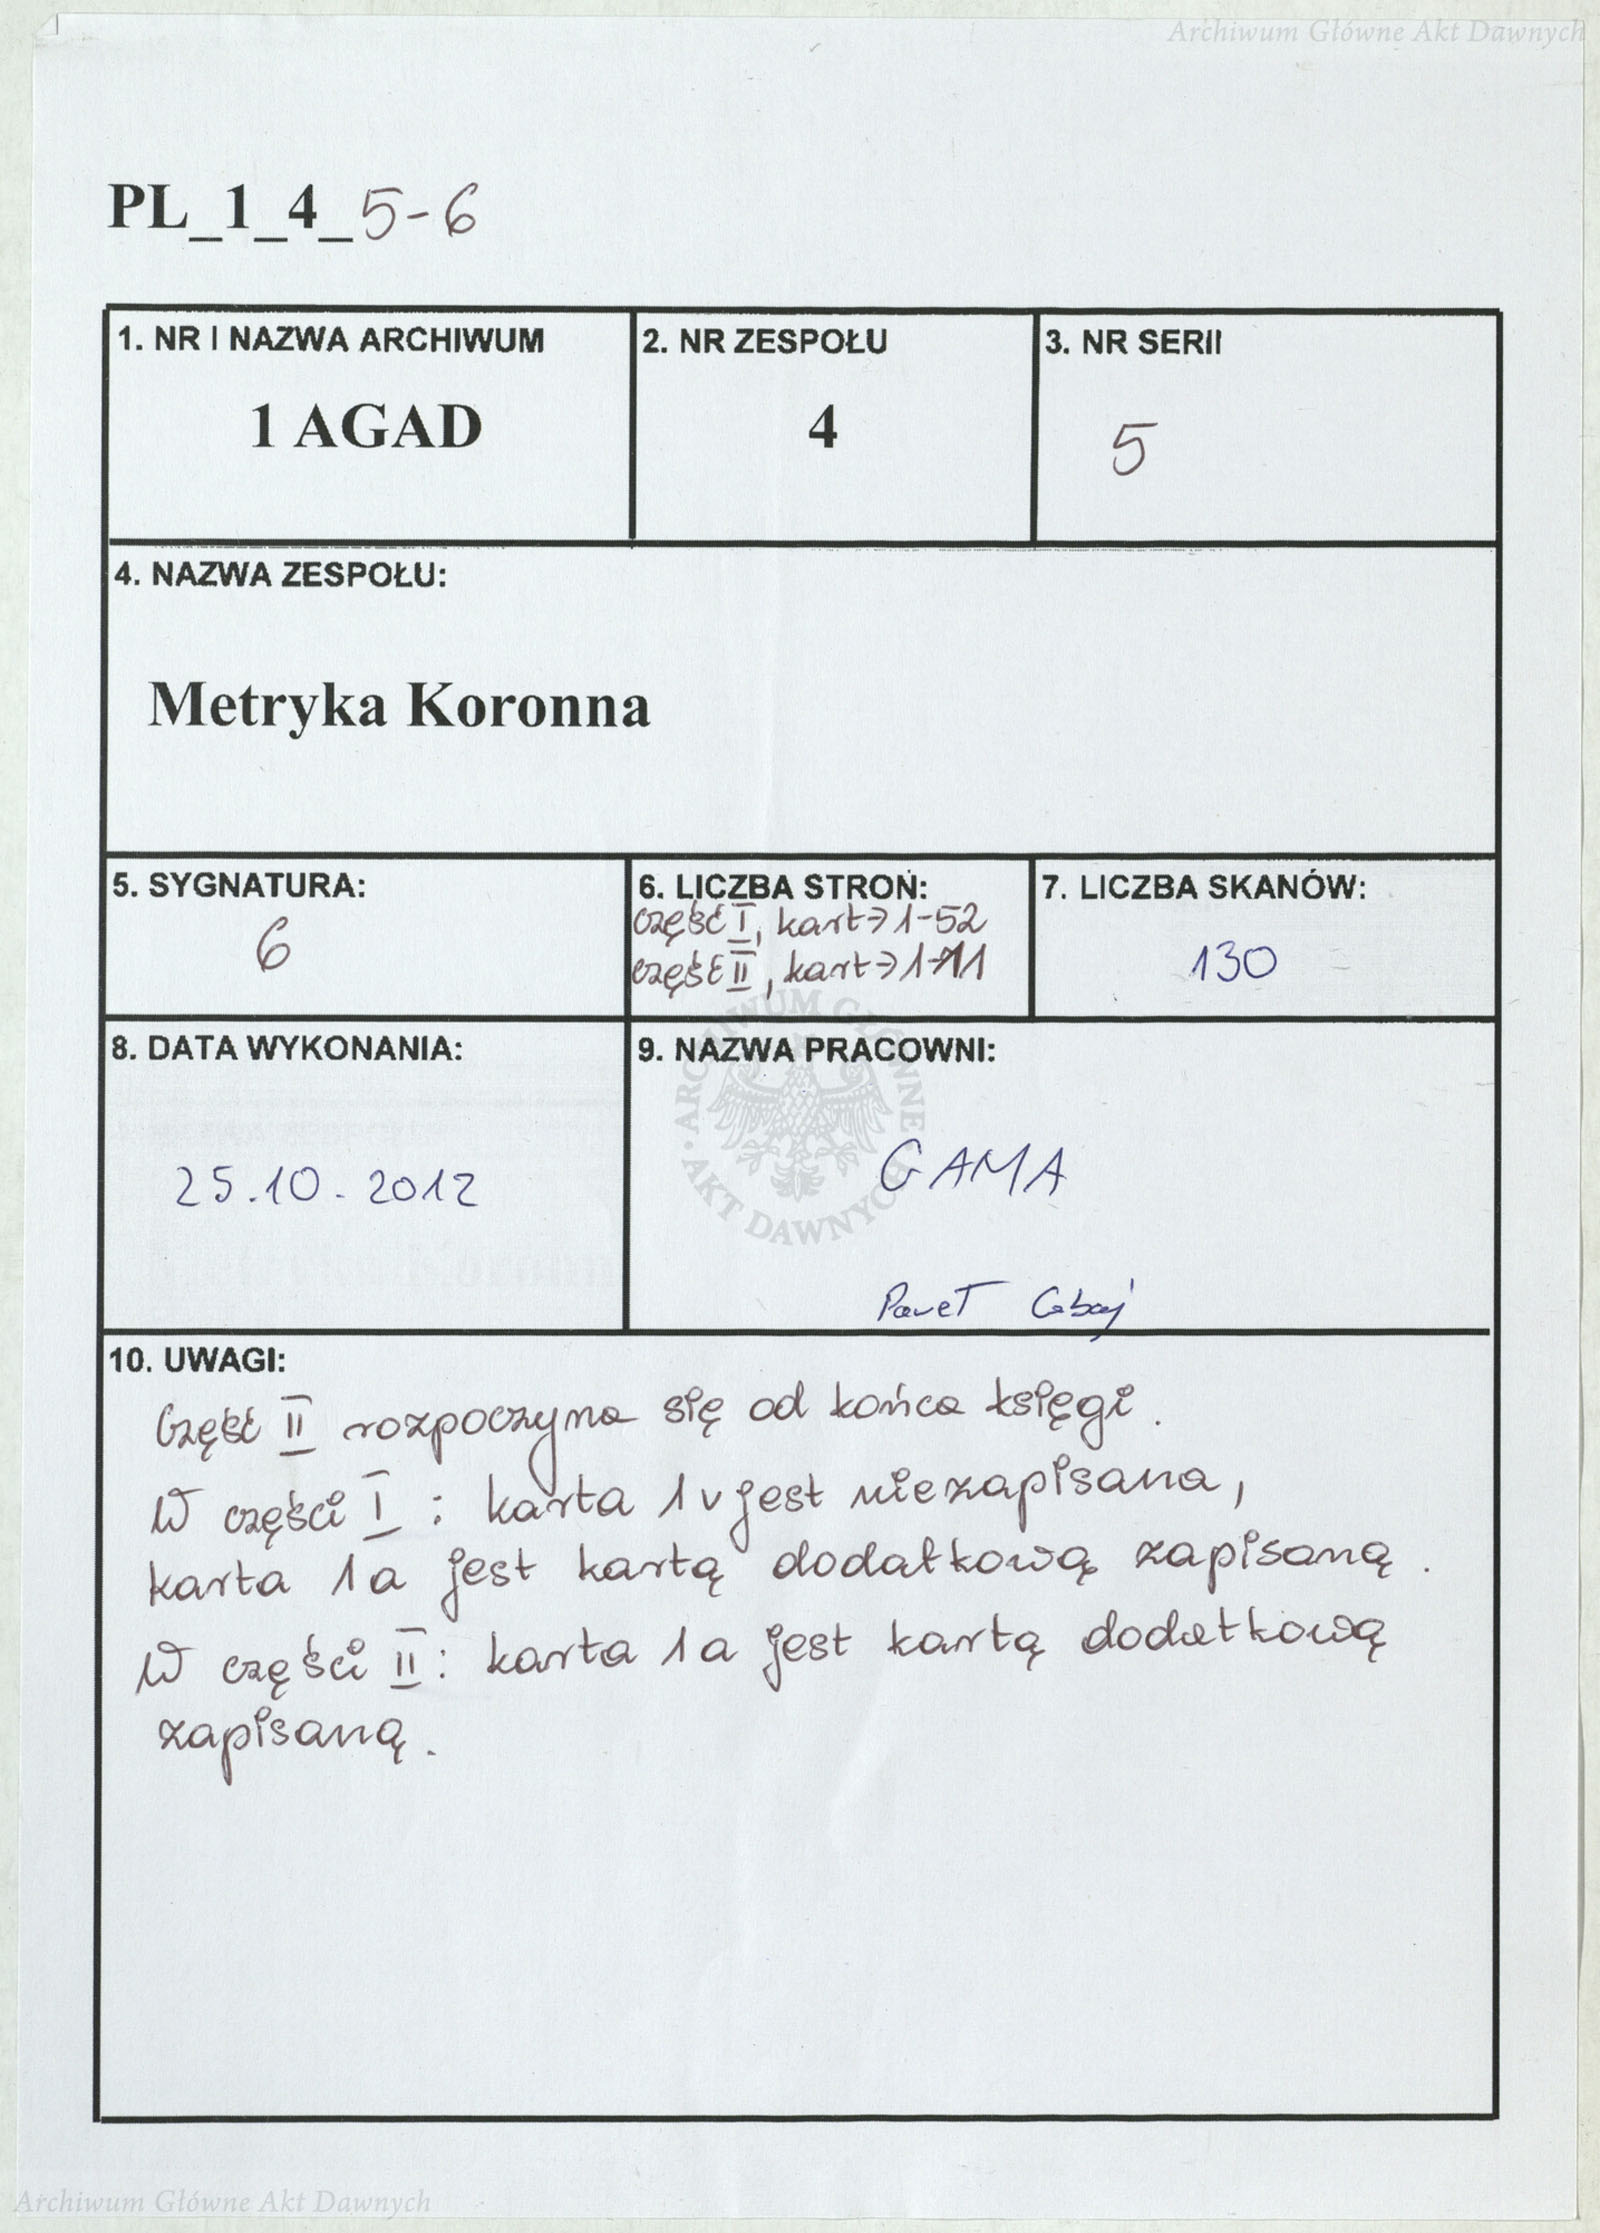 Archiwum Główne Akt Dawnych
PL_1_4_5-6
1. NR I NAZWA ARCHIWUM
1 AGAD
2. NR ZESPOŁU
4
3. NR SERII
5
4. NAZWA ZESPOŁU:
Metryka Koronna
5. SYGNATURA:
6
6. LICZBA STRON:
część I, kart → 1-52
część II, kart → 1-11
7. LICZBA SKANÓW:
130
8. DATA WYKONANIA:
25.10.2012
9. NAZWA PRACOWNI:
GAMA
Paweł
ARCHIWUM GŁÓWNE AKT DAWNYCH
10. UWAGI:
Część II rozpoczyna się od końca księgi.
W części I : karta 1v jest niezapisana,
karta 1a jest kartą dodatkową zapisaną.
W części II : karta 1a jest kartą dodatkową
zapisaną.
Archiwum Główne Akt Dawnych